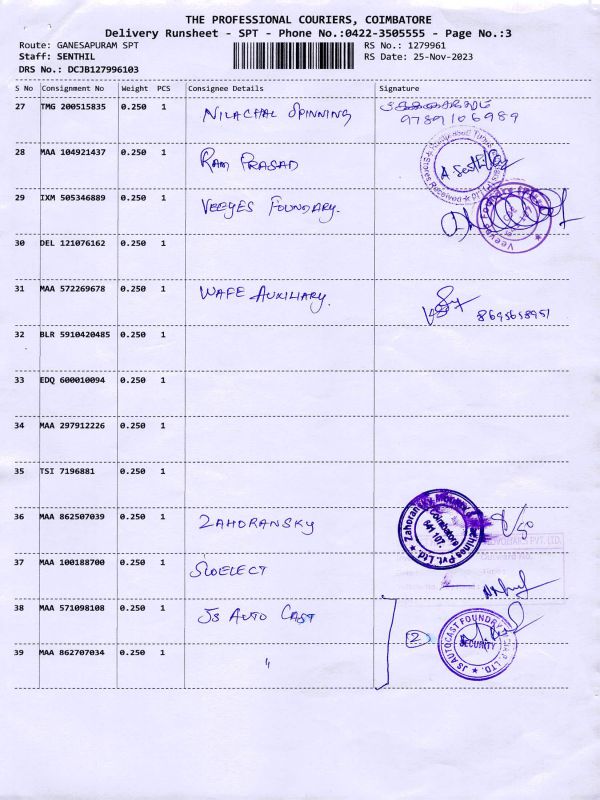 THE PROFESSIONAL COURIERS, COIMBATORE
Delivery Runsheet - SPT - Phone No.:0422-3505555 - Page No.:3
Route: GANESAPURAM SPT RS No.: 1279961
Staff: SENTHIL RS Date: 25-Nov-2023
DRS No.: DCJB127996103
S No Consignment No Weight PCS Consignee Details Signature
27 TMG 200515835 0.250 1 NILACHAL SPINNING
9789106989
28 MAA 104921437 0.250 1 RAM PRASAD
29 IXM 505346889 0.250 1 VEEYES FOUNDARY.
30 DEL 121076162 0.250 1
31 MAA 572269678 0.250 1 WAFE AUXILIARY.
8695658951
32 BLR 5910420485 0.250 1
33 EDQ 600010094 0.250 1
34 MAA 297912226 0.250 1
35 TSI 7196881 0.250 1
36 MAA 862507039 0.250 1 ZAHORANSKY
Coimbatore
641 107.
37 MAA 100188700 0.250 1 SWELECT
38 MAA 571098108 0.250 1 JS AUTO CAST
2
JS AUTOCAST FOUNDRY
SECURITY
39 MAA 862707034 0.250 1 "